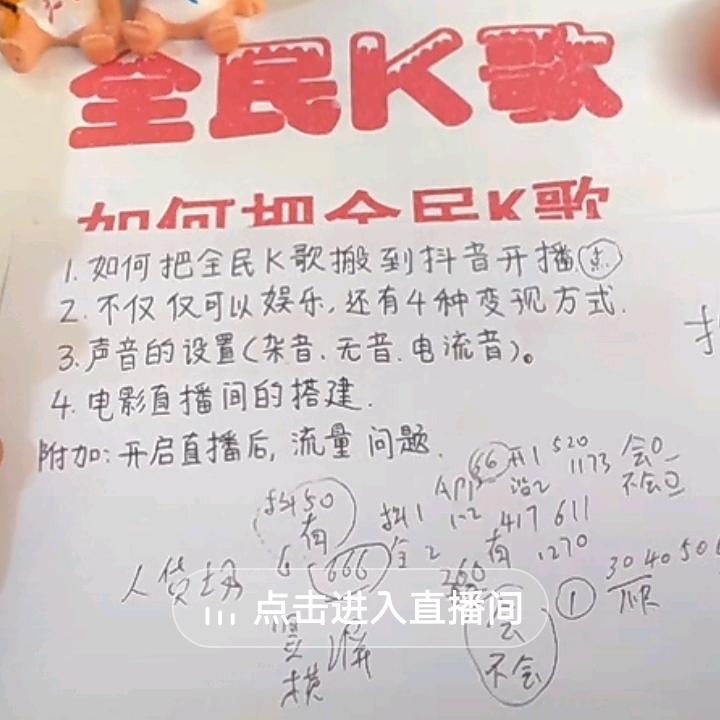 全民K歌
如何把全民K歌
1. 如何把全民K歌搬到抖音开播.点.
2. 不仅仅可以娱乐,还有4种变现方式.
3. 声音的设置(杂音.无音.电流音)。
4. 电影直播间的搭建.
附加:开启直播后,流量问题.
66 开1 520 会0
APP 1173 不会
抖50 抖1 1-2 417 611
有 全2 有 1270
人货场 6 666 260 ① 30 40 50
点击进入直播间
会
横
不会